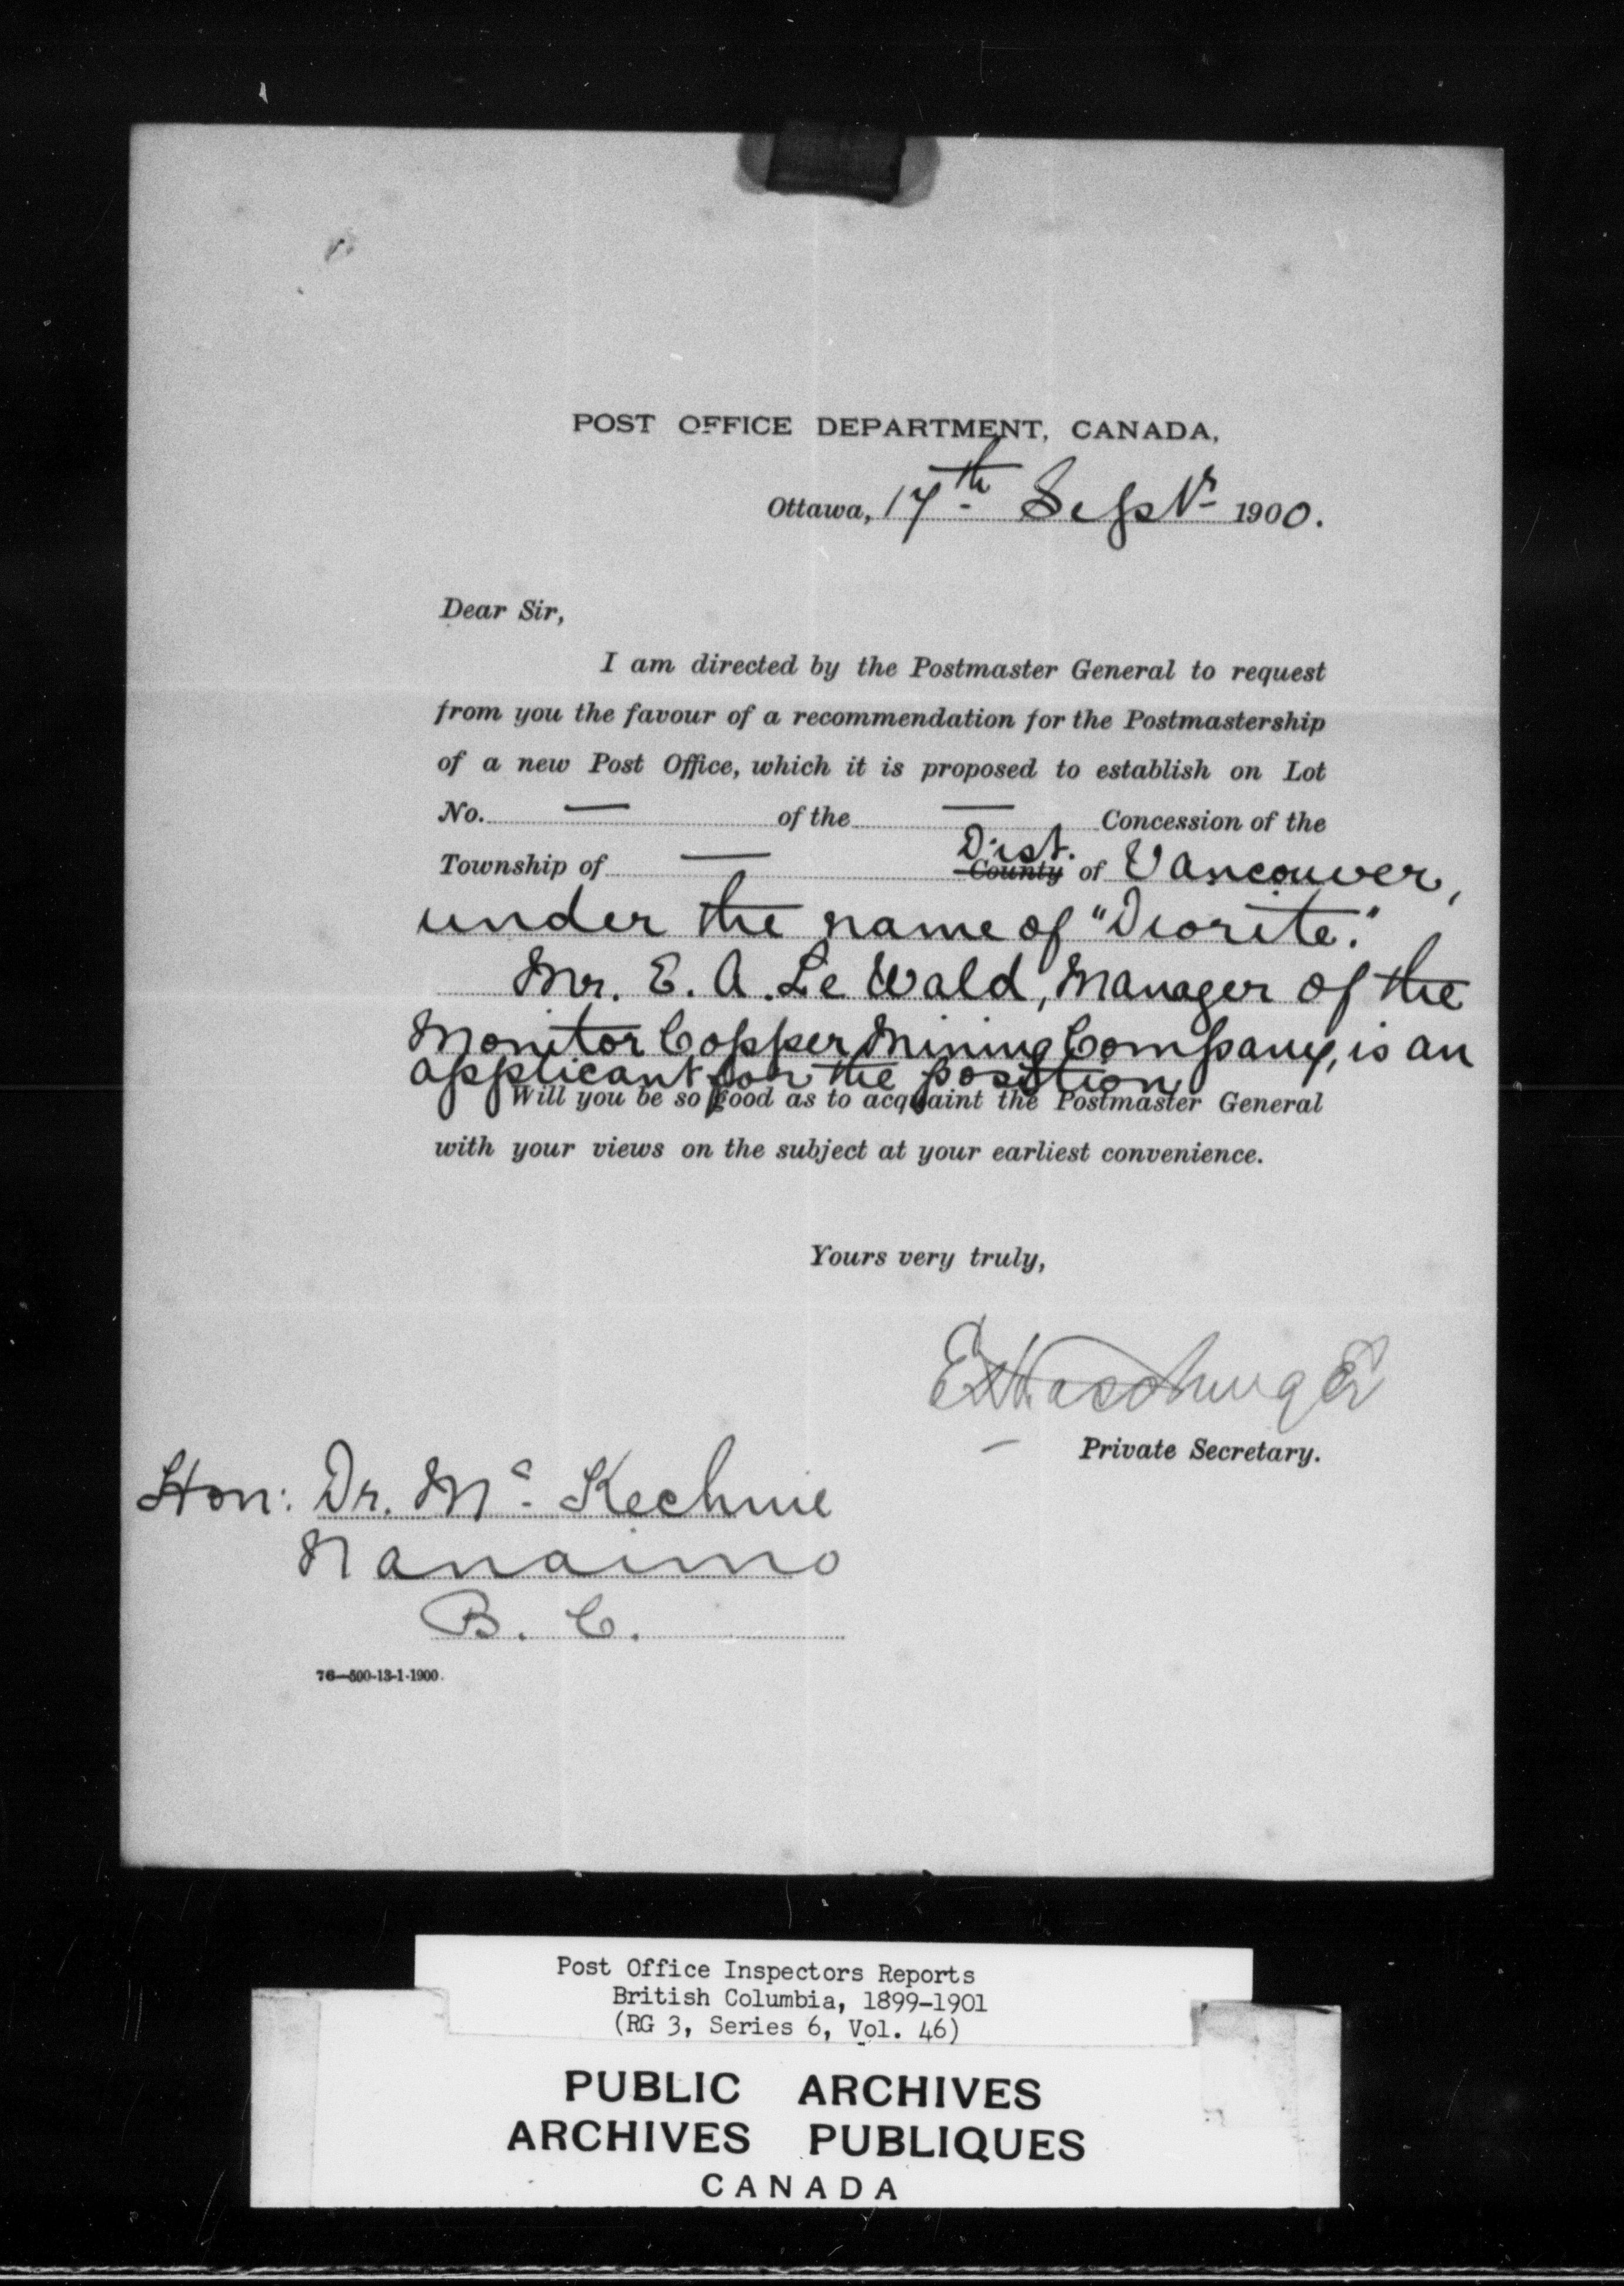 POST OFFICE DEPARTMENT, CANADA,
Ottawa, 17th Sept 1900.
Dear Sir,
I am directed by the Postmaster General to request
from you the favour of a recommendation for the Postmastership
of a new Post Office, which it is proposed to establish on Lot
No. — of the — Concession of the
Dist.
Township of — County of Vancouver,
under the name of "Diorite."
Mr. E. A. Le Wald, Manager of the
Monitor Copper Mining Company, is an
applicant for the position
Will you be so good as to acquaint the Postmaster General
with your views on the subject at your earliest convenience.
Yours very truly,
Private Secretary.
Hon: Dr. Mc Kechnie
Nanaimo
B. C.
76—500-13-1-1900.
Post Office Inspectors Reports
British Columbia, 1899-1901
(RG 3, Series 6, Vol. 46)
PUBLIC ARCHIVES
ARCHIVES PUBLIQUES
CANADA